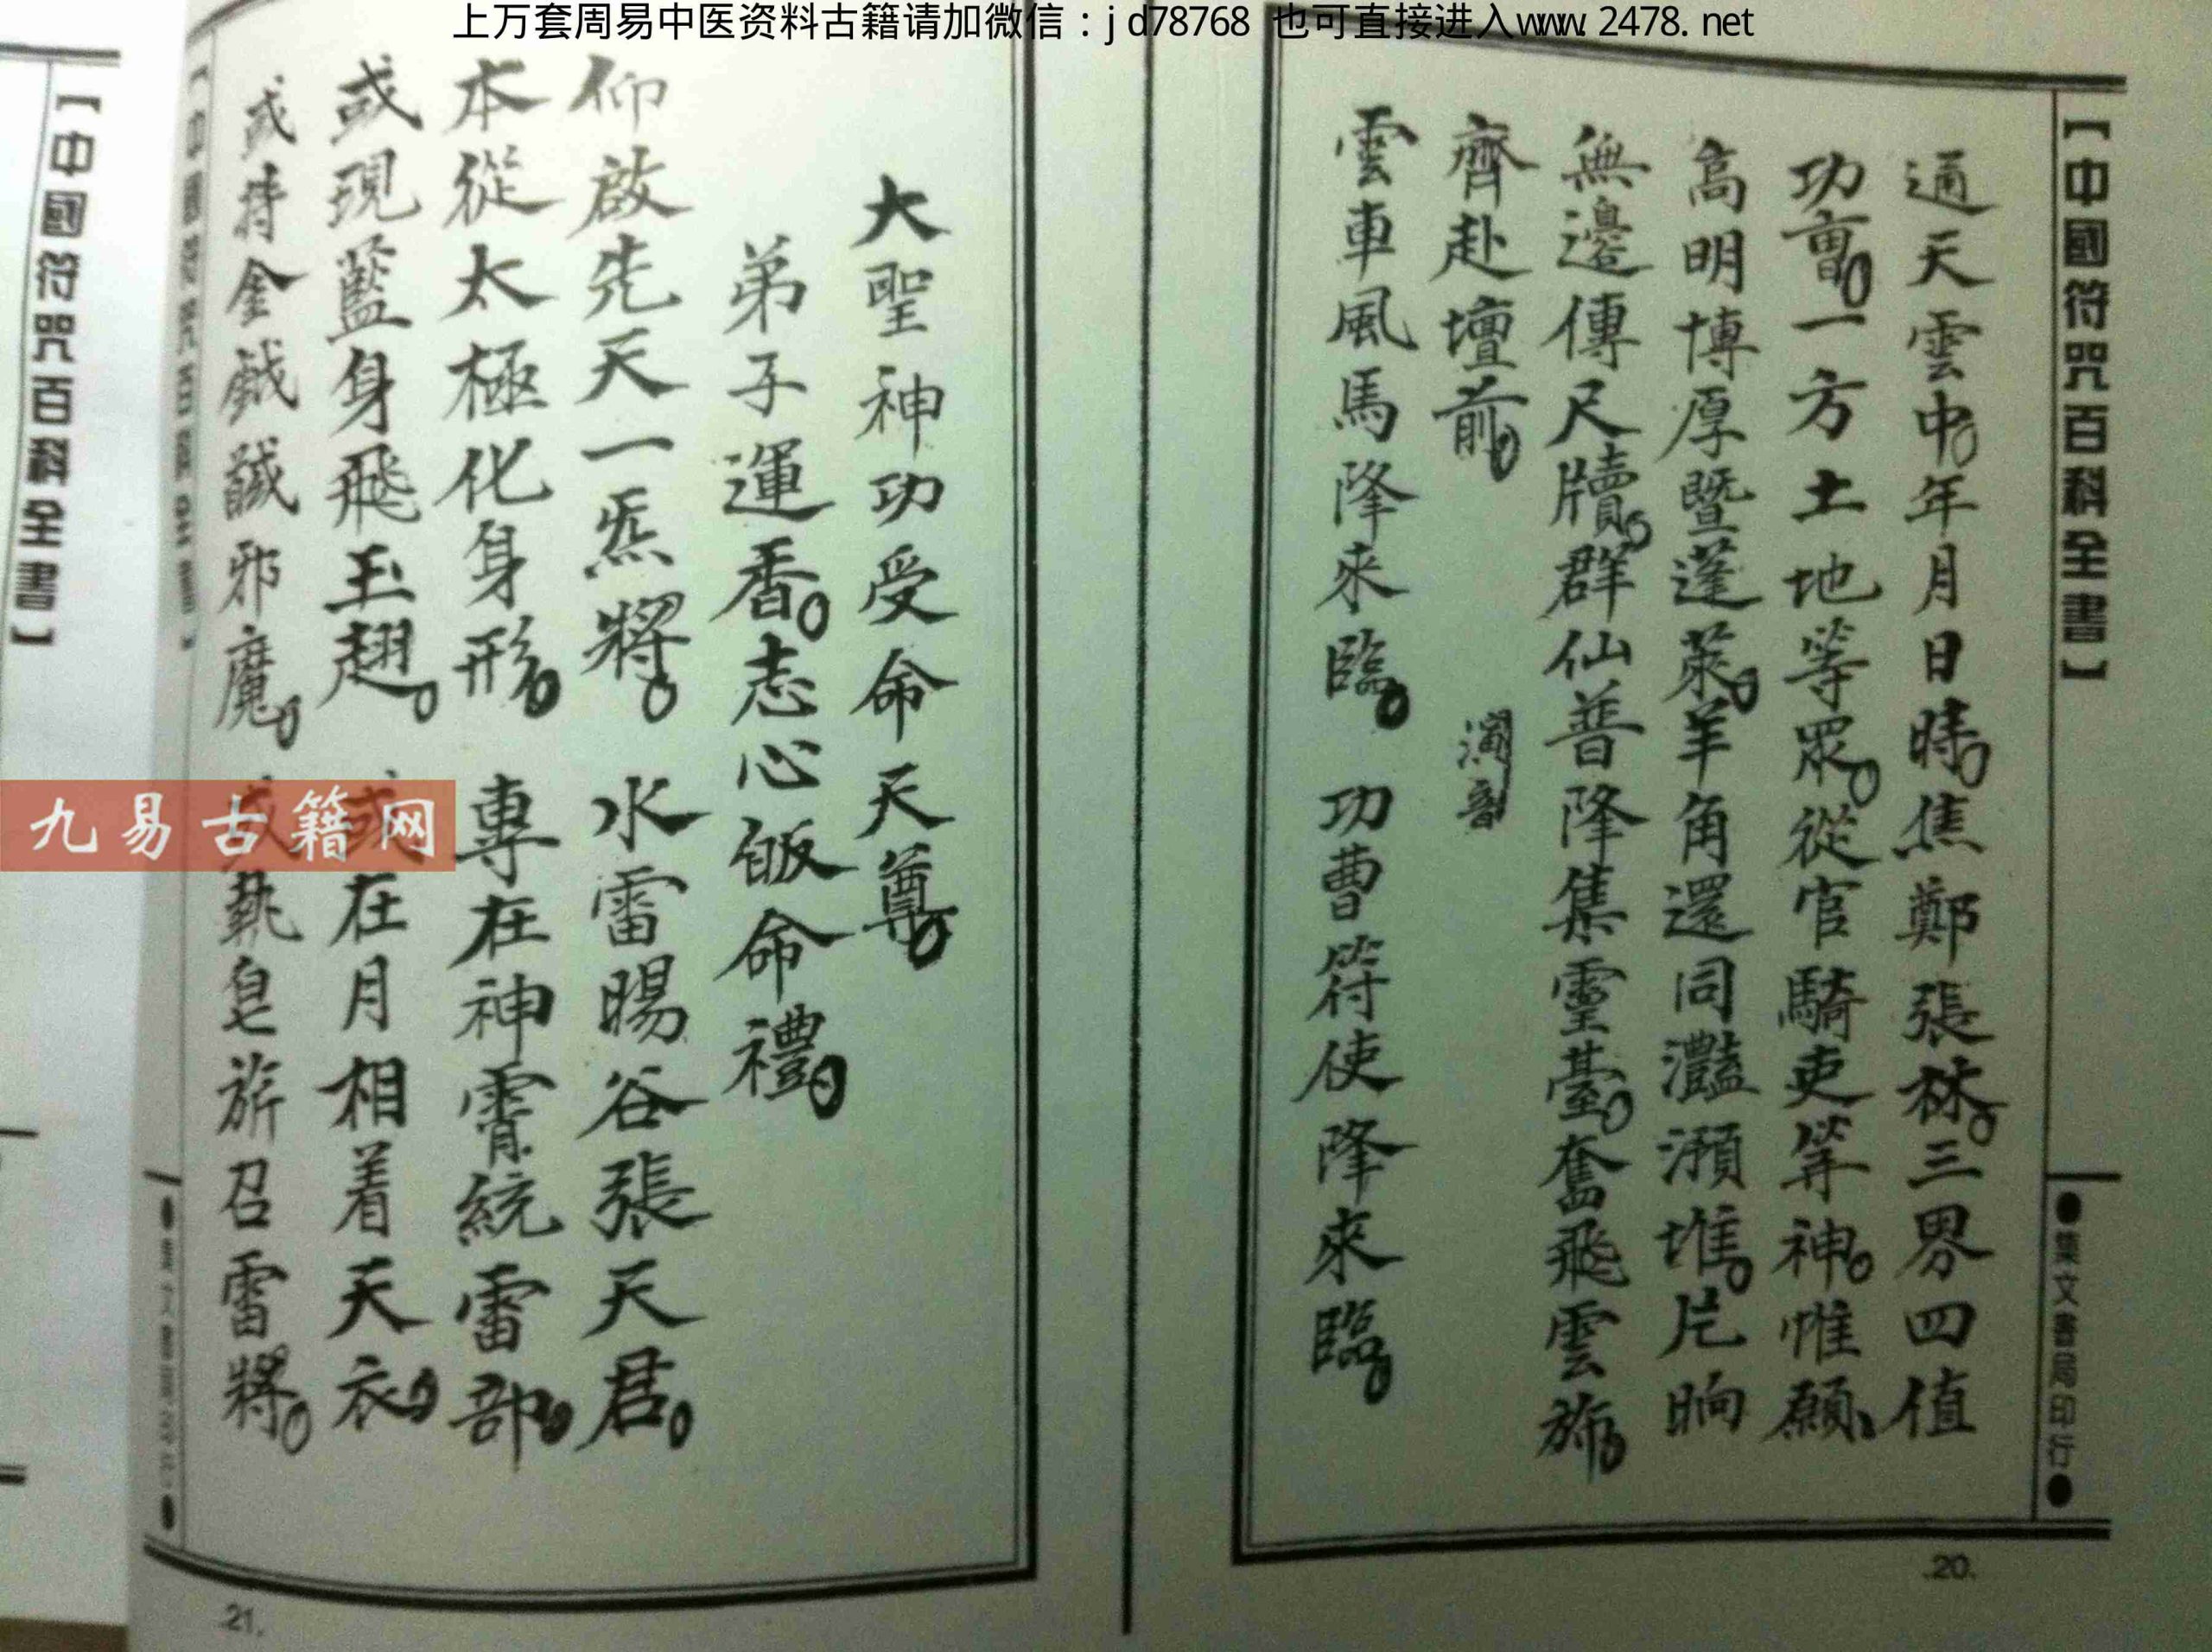 上万套周易中医资料古籍请加微信：jd78768 也可直接进入www.2478.net
【中國符咒百科全書】
●集文書局印行●
通天雲中。年月日時。焦鄭張林。三界四值
功曹。一方土地等眾。從官騎吏等神。惟願
高明博厚暨蓬萊。羊角還同灩澦堆。片晌
無邊傳尺牘。群仙普降集靈臺。奮飛雲旆。
齊赴壇前。
雲車風馬降來臨。 功曹符使降來臨。
.20.
大聖神功受命天尊。
弟子運香。志心皈命禮。
仰啟先天一炁將。 水雷暘谷張天君。
本從太極化身形。 專在神霄統雷部。
或現藍身飛玉翅。 或在月相着天衣。
或持金鉞馘邪魔。 或執皂旂召雷將。
.21.
【中國符咒百科全書】
九易古籍网